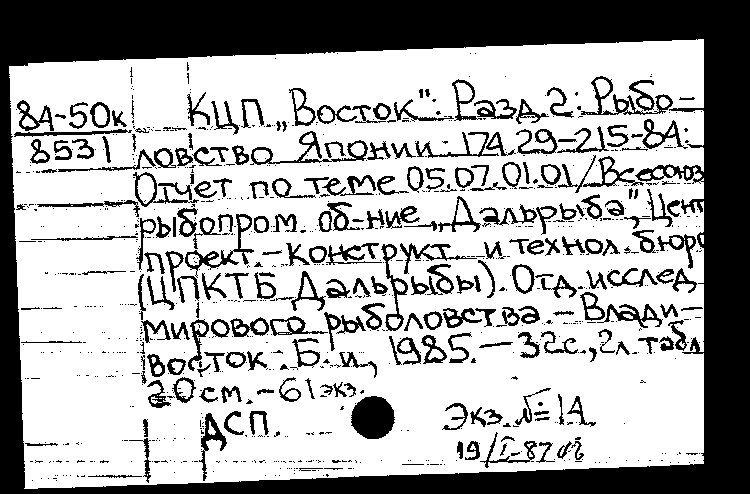 84-50к КЦП „Восток": Разд. 2: Рыбо-
8531 ловство Японии: 174.29-215-84:
Отчет по теме 05.07.01.01/Всесоюз
рыбопром. об-ние „Дальрыба", Цент
проект.-конструкт. и технол. бюро
(ЦПКТБ Дальрыбы). Отд. исслед
мирового рыболовства.- Влади-
восток: Б. и., 1985.-32с., 2л. табл
20см.-61экз.
ДСП. Экз. № 1А
19/I-87